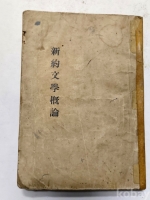 新約文學概論